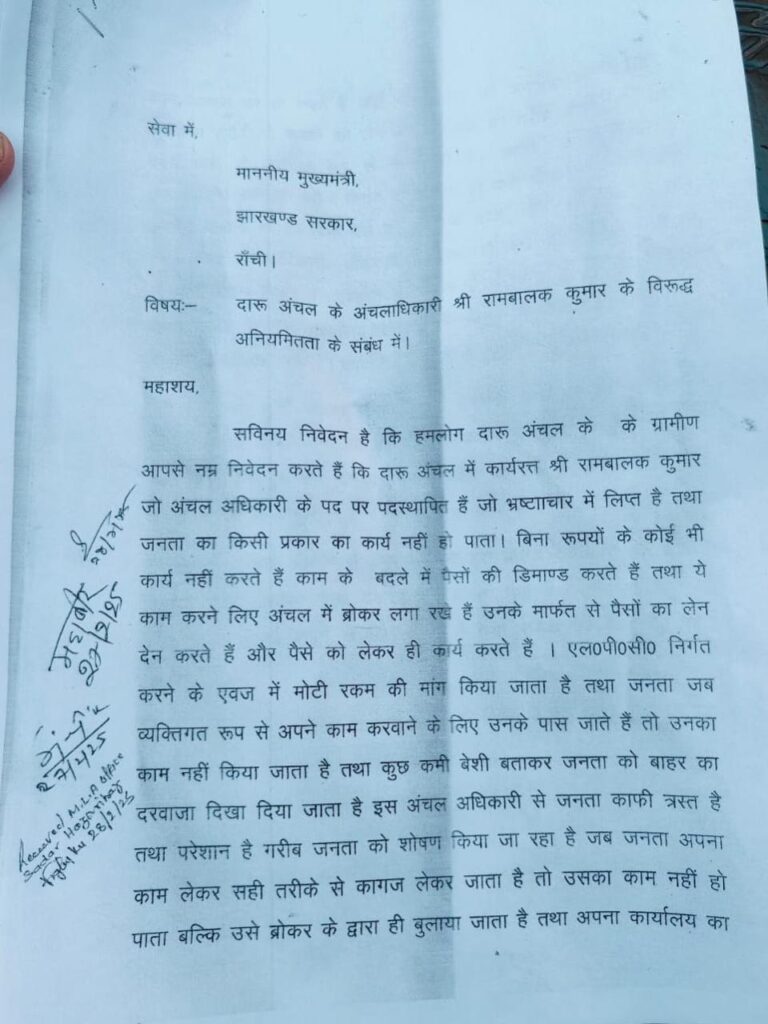 सेवा में,
माननीय मुख्यमंत्री,
झारखण्ड सरकार,
राँची।
विषयः– दारू अंचल के अंचलाधिकारी श्री रामबालक कुमार के विरूद्ध
अनियमितता के संबंध में।
महाशय,
सविनय निवेदन है कि हमलोग दारू अंचल के के ग्रामीण
आपसे नम्र निवेदन करते हैं कि दारू अंचल में कार्यरत्त श्री रामबालक कुमार
जो अंचल अधिकारी के पद पर पदस्थापित हैं जो भ्रष्टााचार में लिप्त है तथा
जनता का किसी प्रकार का कार्य नहीं हो पाता। बिना रूपयों के कोई भी
कार्य नहीं करते हैं काम के बदले में पैसों की डिमाण्ड करते हैं तथा ये
काम करने लिए अंचल में ब्रोकर लगा रखे हैं उनके मार्फत से पैसों का लेन
देन करते हैं और पैसे को लेकर ही कार्य करते हैं । एल०पी०सी० निर्गत
करने के एवज में मोटी रकम की मांग किया जाता है तथा जनता जब
व्यक्तिगत रूप से अपने काम करवाने के लिए उनके पास जाते हैं तो उनका
काम नहीं किया जाता है तथा कुछ कमी बेशी बताकर जनता को बाहर का
दरवाजा दिखा दिया जाता है इस अंचल अधिकारी से जनता काफी त्रस्त है
तथा परेशान है गरीब जनता को शोषण किया जा रहा है जब जनता अपना
काम लेकर सही तरीके से कागज लेकर जाता है तो उसका काम नहीं हो
पाता बल्कि उसे ब्रोकर के द्वारा ही बुलाया जाता है तथा अपना कार्यालय का
महाबीर
27/2/25
Received M.L.A office
Sadar Hazaribag
28/2/25